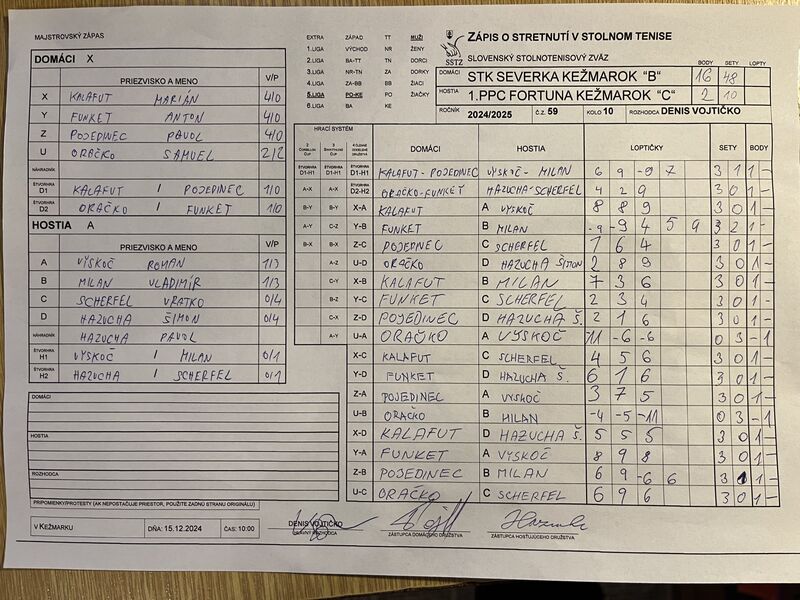 MAJSTROVSKÝ ZÁPAS
DOMÁCI X
PRIEZVISKO A MENO V/P
X KALAFUT MARIÁN 4/0
Y FUNKET ANTON 4/0
Z POJEDINEC PAVOL 4/0
U ORAČKO SAMUEL 2/2
NÁHRADNÍK
ŠTVORHRA D1 KALAFUT / POJEDINEC 1/0
ŠTVORHRA D2 ORAČKO / FUNKET 1/0
HOSTIA A
PRIEZVISKO A MENO V/P
A VYSKOČ ROMAN 1/3
B MILAN VLADIMÍR 1/3
C SCHERFEL VRATKO 0/4
D HAZUCHA ŠIMON 0/4
NÁHRADNÍK HAZUCHA PAVOL
ŠTVORHRA H1 VYSKOČ / MILAN 0/1
ŠTVORHRA H2 HAZUCHA / SCHERFEL 0/1
DOMÁCI
HOSTIA
ROZHODCA
PRIPOMIENKY/PROTESTY (AK NEPOSTAČUJE PRIESTOR, POUŽITE ZADNÚ STRANU ORIGINÁLU)
V KEŽMARKU DŇA: 15.12.2024 ČAS: 10:00
DENIS VOJTIČKO
HLAVNÝ ROZHODCA
ZÁSTUPCA DOMÁCEHO DRUŽSTVA
ZÁSTUPCA HOSŤUJÚCEHO DRUŽSTVA
EXTRA ZÁPAD TT MUŽI
1.LIGA VÝCHOD NR ŽENY
2.LIGA BA-TT TN DORCI
3.LIGA NR-TN ZA DORKY
4.LIGA ZA-BB BB ŽIACI
5.LIGA PO-KE PO ŽIAČKY
6.LIGA BA KE
SSTZ
ZÁPIS O STRETNUTÍ V STOLNOM TENISE
SLOVENSKÝ STOLNOTENISOVÝ ZVÄZ
BODY SETY LOPTY
DOMÁCI STK SEVERKA KEŽMAROK "B" 16 48
HOSTIA 1.PPC FORTUNA KEŽMAROK "C" 2 10
ROČNÍK 2024/2025 Č.Z. 59 KOLO 10 ROZHODCA DENIS VOJTIČKO
HRACÍ SYSTÉM
DOMÁCI HOSTIA LOPTIČKY SETY BODY
ŠTVORHRA D1-H1 ŠTVORHRA D1-H1 ŠTVORHRA D1-H1 KALAFUT-POJEDINEC VYSKOČ-MILAN 6 9 -9 7 3 1 1 -
A-X A-X ŠTVORHRA D2-H2 ORAČKO-FUNKET HAZUCHA-SCHERFEL 4 2 9 3 0 1 -
B-Y B-Y X-A KALAFUT A VYSKOČ 8 8 9 3 0 1 -
A-Y C-Z Y-B FUNKET B MILAN -9 -9 4 5 9 3 2 1 -
B-X B-X Z-C POJEDINEC C SCHERFEL 1 6 4 3 0 1 -
A-Z U-D ORAČKO D HAZUCHA ŠIMON 2 8 9 3 0 1 -
C-Y X-B KALAFUT B MILAN 7 3 6 3 0 1 -
B-Z Y-C FUNKET C SCHERFEL 2 3 4 3 0 1 -
C-X Z-D POJEDINEC D HAZUCHA Š. 2 1 6 3 0 1 -
A-Y U-A ORAČKO A VYSKOČ -11 -6 -6 0 3 - 1
X-C KALAFUT C SCHERFEL 4 5 6 3 0 1 -
Y-D FUNKET D HAZUCHA Š. 6 1 6 3 0 1 -
Z-A POJEDINEC A VYSKOČ 3 7 5 3 0 1 -
U-B ORAČKO B MILAN -4 -5 -11 0 3 - 1
X-D KALAFUT D HAZUCHA Š. 5 5 5 3 0 1 -
Y-A FUNKET A VYSKOČ 8 9 8 3 0 1 -
Z-B POJEDINEC B MILAN 6 9 -6 6 3 1 1 -
U-C ORAČKO C SCHERFEL 6 9 6 3 0 1 -